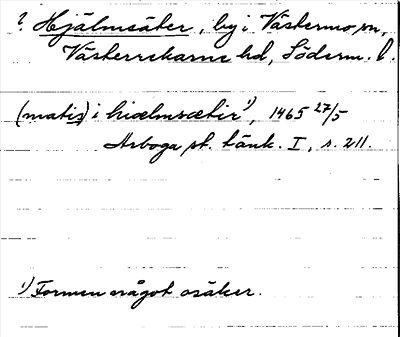 ? Hjälmsäter, by i Västermo sn,
Västerrekarne hd, Söderm. l.
(matis) i hiælmsætir¹), 1465 27/5
Arboga st. tänk. I, s. 211.
¹) Formen något osäker.